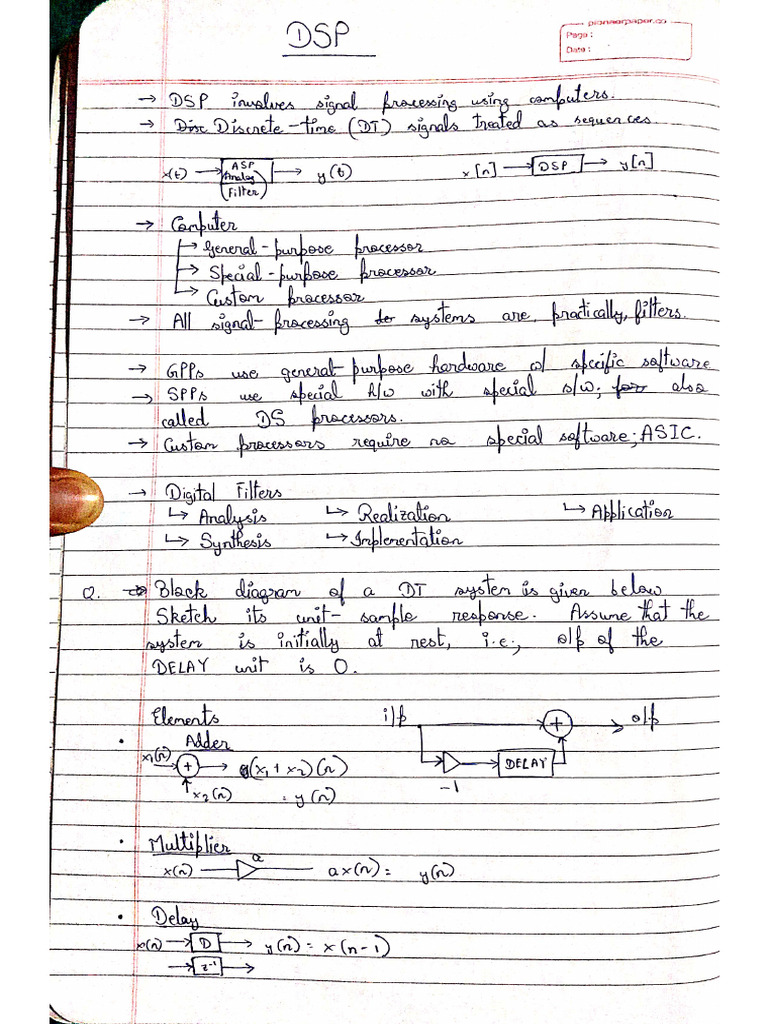 DSP
plannerpaper.co
Page :
Date :
→ DSP involves signal processing using computers.
→ Disc Discrete-time (DT) signals treated as sequences.
x(t) → ASP Analog Filter → y(t)
x[n] → DSP → y[n]
→ Computer
→ General-purpose processor
→ Special-purpose processor
→ Custom processor
→ All signal-processing systems are, practically, filters.
→ GPPs use general-purpose hardware w/ specific software
→ SPPs use special h/w with special s/w; for also
called DS processors.
→ Custom processors require no special software; ASIC.
→ Digital Filters
↳ Analysis ↳ Realization ↳ Application
↳ Synthesis ↳ Implementation
Q. → Block diagram of a DT system is given below
Sketch its unit-sample response. Assume that the
system is initially at rest, i.e., o/p of the
DELAY unit is 0.
Elements
i/p + o/p
-1 DELAY
• Adder
x₁(n) + → (x₁ + x₂)(n)
x₂(n) = y(n)
• Multiplier
x(n) a ax(n) = y(n)
• Delay
x(n) → D → y(n) = x(n-1)
→ z⁻¹ →